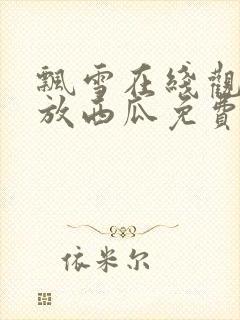 飄雪在綫觀
放西瓜免費
依米尔